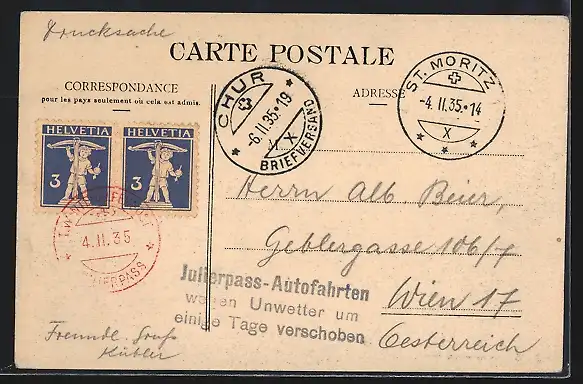 Drucksache
CARTE POSTALE
CORRESPONDANCE
pour les pays seulement où cela est admis.
ADRESSE
CHUR
-6.II.35•19
X
BRIEFVERSAND
ST. MORITZ
-4.II.35•14
X
HELVETIA HELVETIA
3 3
4.II.35
JULIERPASS
Herrn Alb Beier,
Geblergasse 106/7
Wien 17
Oesterreich
Julierpass-Autofahrten
wegen Unwetter um
einige Tage verschoben
Freundl. Gruß
Hübler